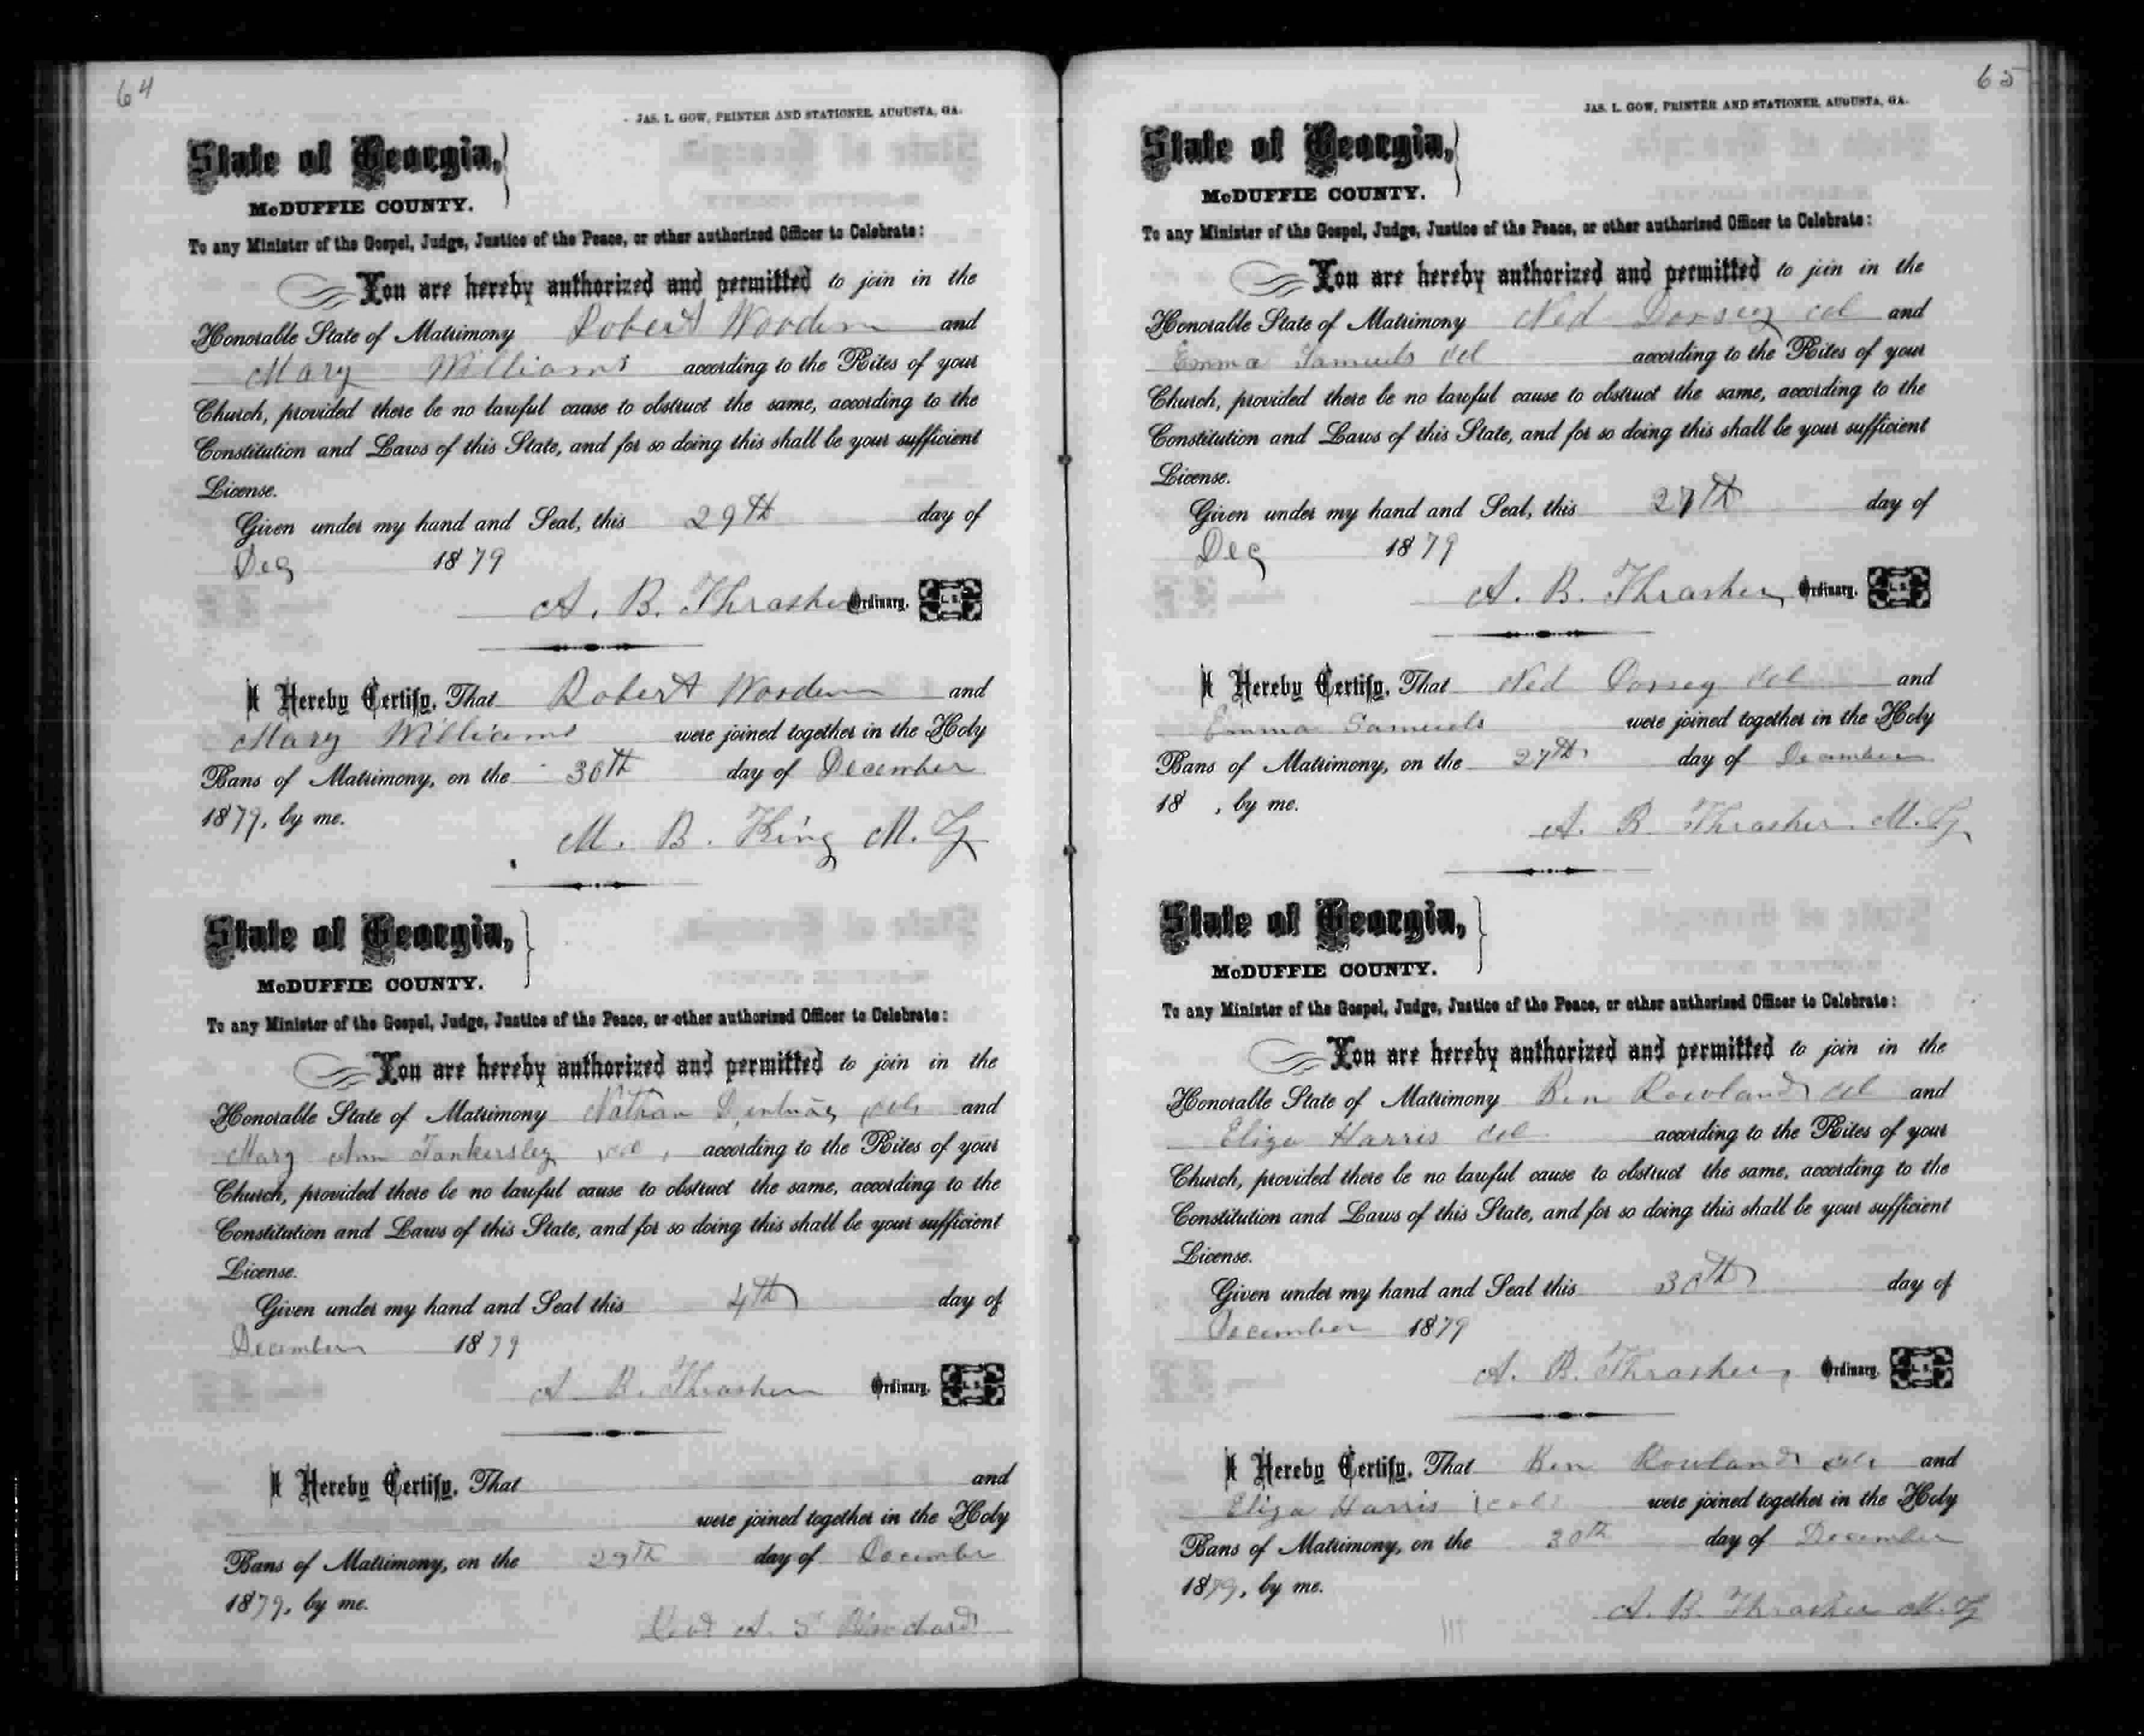 64
JAS. L. GOW, PRINTER AND STATIONER, AUGUSTA, GA.
State of Georgia,
McDUFFIE COUNTY.
To any Minister of the Gospel, Judge, Justice of the Peace, or other authorized Officer to Celebrate:
You are hereby authorized and permitted to join in the
Honorable State of Matrimony Robert Wooden and
Mary Williams according to the Rites of your
Church, provided there be no lawful cause to obstruct the same, according to the
Constitution and Laws of this State, and for so doing this shall be your sufficient
License.
Given under my hand and Seal, this 29th day of
Dec 1879
A. B. Thrasher Ordinary. L. S.
I Hereby Certify, That Robert Wooden and
Mary Williams were joined together in the Holy
Bans of Matrimony, on the 30th day of December
1879, by me.
M. B. King M. G
State of Georgia,
McDUFFIE COUNTY.
To any Minister of the Gospel, Judge, Justice of the Peace, or other authorized Officer to Celebrate:
You are hereby authorized and permitted to join in the
Honorable State of Matrimony Nathan col and
Mary Ann Tankersley col, according to the Rites of your
Church, provided there be no lawful cause to obstruct the same, according to the
Constitution and Laws of this State, and for so doing this shall be your sufficient
License.
Given under my hand and Seal this 4th day of
December 1879
A. B. Thrasher Ordinary. L. S.
I Hereby Certify, That and
were joined together in the Holy
Bans of Matrimony, on the 29th day of December
1879, by me.
A. S. Blanchard
65
JAS. L. GOW, PRINTER AND STATIONER, AUGUSTA, GA.
State of Georgia,
McDUFFIE COUNTY.
To any Minister of the Gospel, Judge, Justice of the Peace, or other authorized Officer to Celebrate:
You are hereby authorized and permitted to join in the
Honorable State of Matrimony Ned Dorsey col and
Emma Samuels col according to the Rites of your
Church, provided there be no lawful cause to obstruct the same, according to the
Constitution and Laws of this State, and for so doing this shall be your sufficient
License.
Given under my hand and Seal, this 27th day of
Dec 1879
A. B. Thrasher Ordinary. L. S.
I Hereby Certify, That Ned Dorsey col and
Emma Samuels were joined together in the Holy
Bans of Matrimony, on the 27th day of December
18 , by me.
A. B. Thrasher M. G
State of Georgia,
McDUFFIE COUNTY.
To any Minister of the Gospel, Judge, Justice of the Peace, or other authorized Officer to Celebrate:
You are hereby authorized and permitted to join in the
Honorable State of Matrimony Ben Rowland col and
Eliza Harris col according to the Rites of your
Church, provided there be no lawful cause to obstruct the same, according to the
Constitution and Laws of this State, and for so doing this shall be your sufficient
License.
Given under my hand and Seal this 30th day of
December 1879
A. B. Thrasher Ordinary. L. S.
I Hereby Certify, That Ben Rowland col and
Eliza Harris col were joined together in the Holy
Bans of Matrimony, on the 30th day of December
1879, by me.
A. B. Thrasher M. G